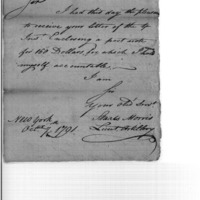 Sir
I had this day the pleasure
to receive your letter of the 4
Inst Enclosing a post note
for 160 Dollars for which I hold
myself accountable.
I am
Sir
Your Obt Servt
New York Morris
1791. Lieut